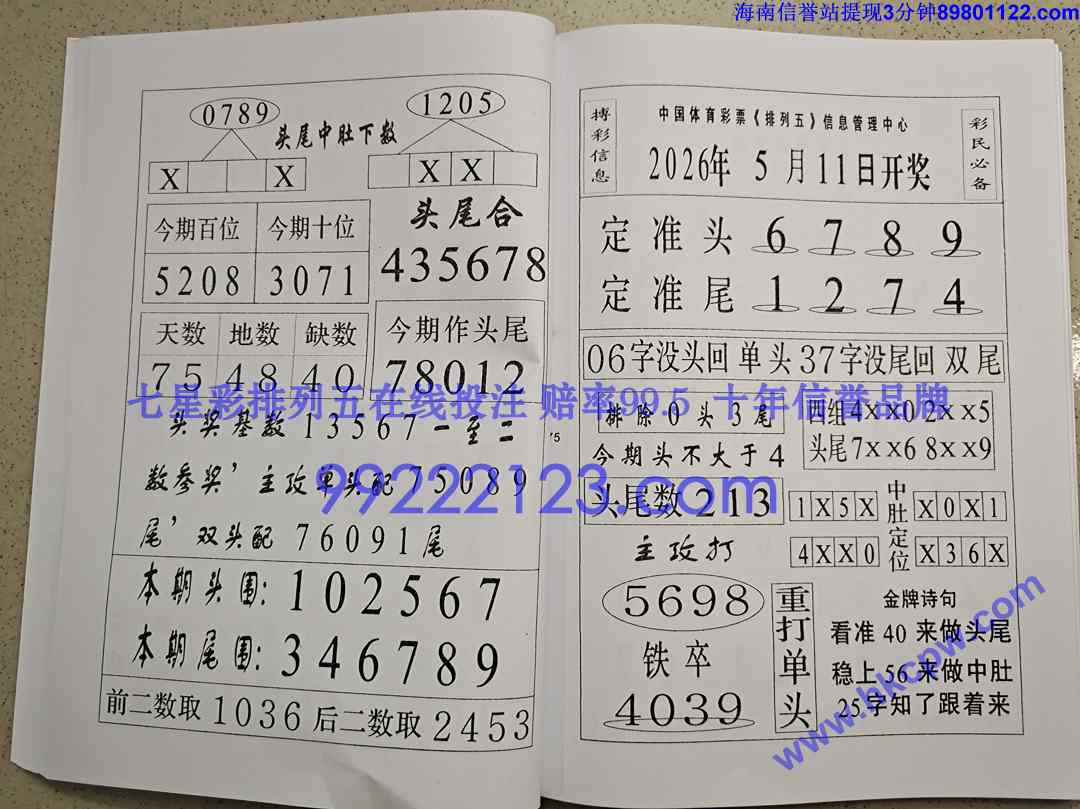 海南信誉站提现3分钟89801122.com
0789
1205
头尾中肚下数
X X
X X
头尾合
435678
今期百位 今期十位
5208 3071
天数 地数 缺数
75 48 40
今期作头尾
78012
七星彩排列五在线投注 赔率99.5 十年信誉品牌
头奖基数13567一至二
数参奖’主攻单头配75089
尾’双头配 76091尾
99222123.com
本期头围:102567
本期尾围:346789
前二数取1036后二数取2453
75
搏彩信息
中国体育彩票《排列五》信息管理中心
2026年 5月11日开奖
彩民必备
定准头 6 7 8 9
定准尾 1 2 7 4
06字没头回 单头 37字没尾回 双尾
排除0头3尾
今期头不大于4
四组4XX0 2XX5
头尾7XX6 8XX9
头尾数 213
1X5X 中肚定位 X0X1
4XX0 X36X
主攻打
5698
铁卒
4039
重打单头
金牌诗句
看准40来做头尾
稳上56来做中肚
25字知了跟着来
www.hkcpw.com